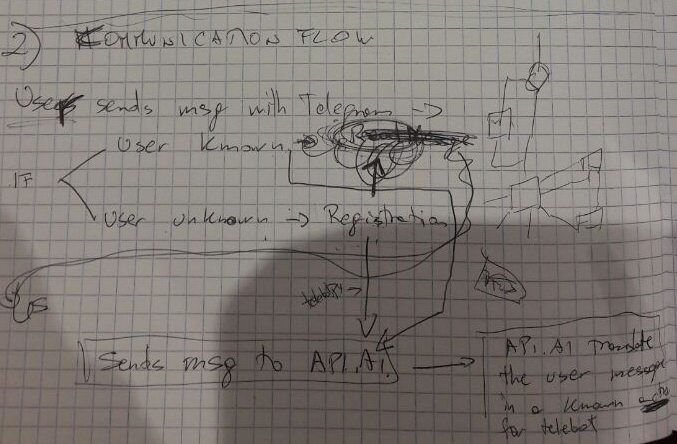 2) COMMUNICATION FLOW
User sends msg with Telegram ->
IF
User known
User unknown -> Registration
Sends msg to API.AI
API.AI translate
the user message
in a known
for telebot